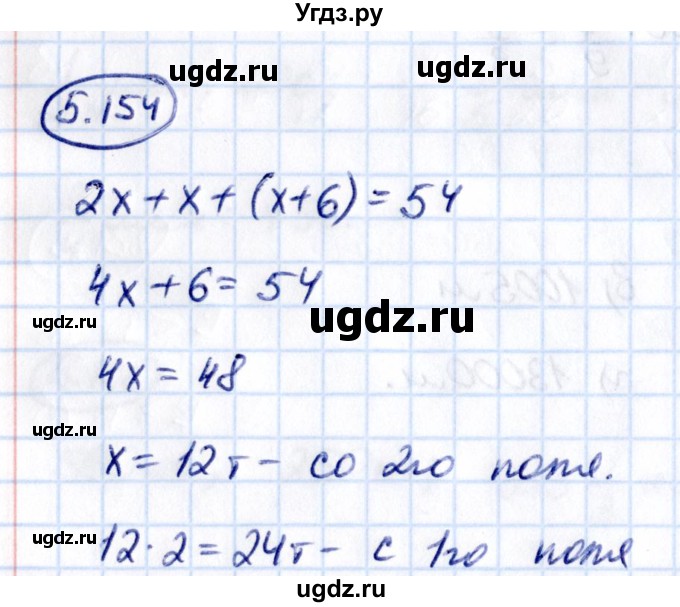 Угдз.ру
ugdz.ru ugdz.ru
5.154
2x + x + (x+6) = 54
4x + 6 = 54
ugdz.ru ugdz.ru
4x = 48
ugdz.ru
x = 12т - со 2го поля.
ugdz.ru ugdz.ru
12·2 = 24т - с 1го поля
ugdz.ru